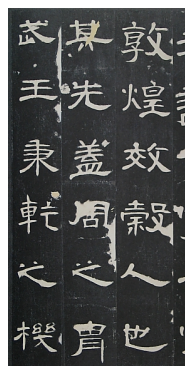 敦煌效穀人也
其先蓋周之胄
武王秉乾之機